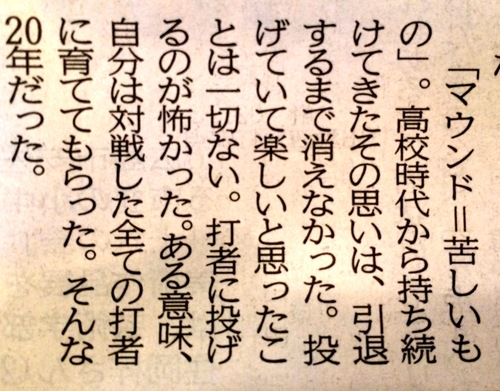 「マウンド＝苦しいも
の」。高校時代から持ち続
けてきたその思いは、引退
するまで消えなかった。投
げていて楽しいと思ったこ
とは一切ない。打者に投げ
るのが怖かった。ある意味、
自分は対戦した全ての打者
に育ててもらった。そんな
20年だった。